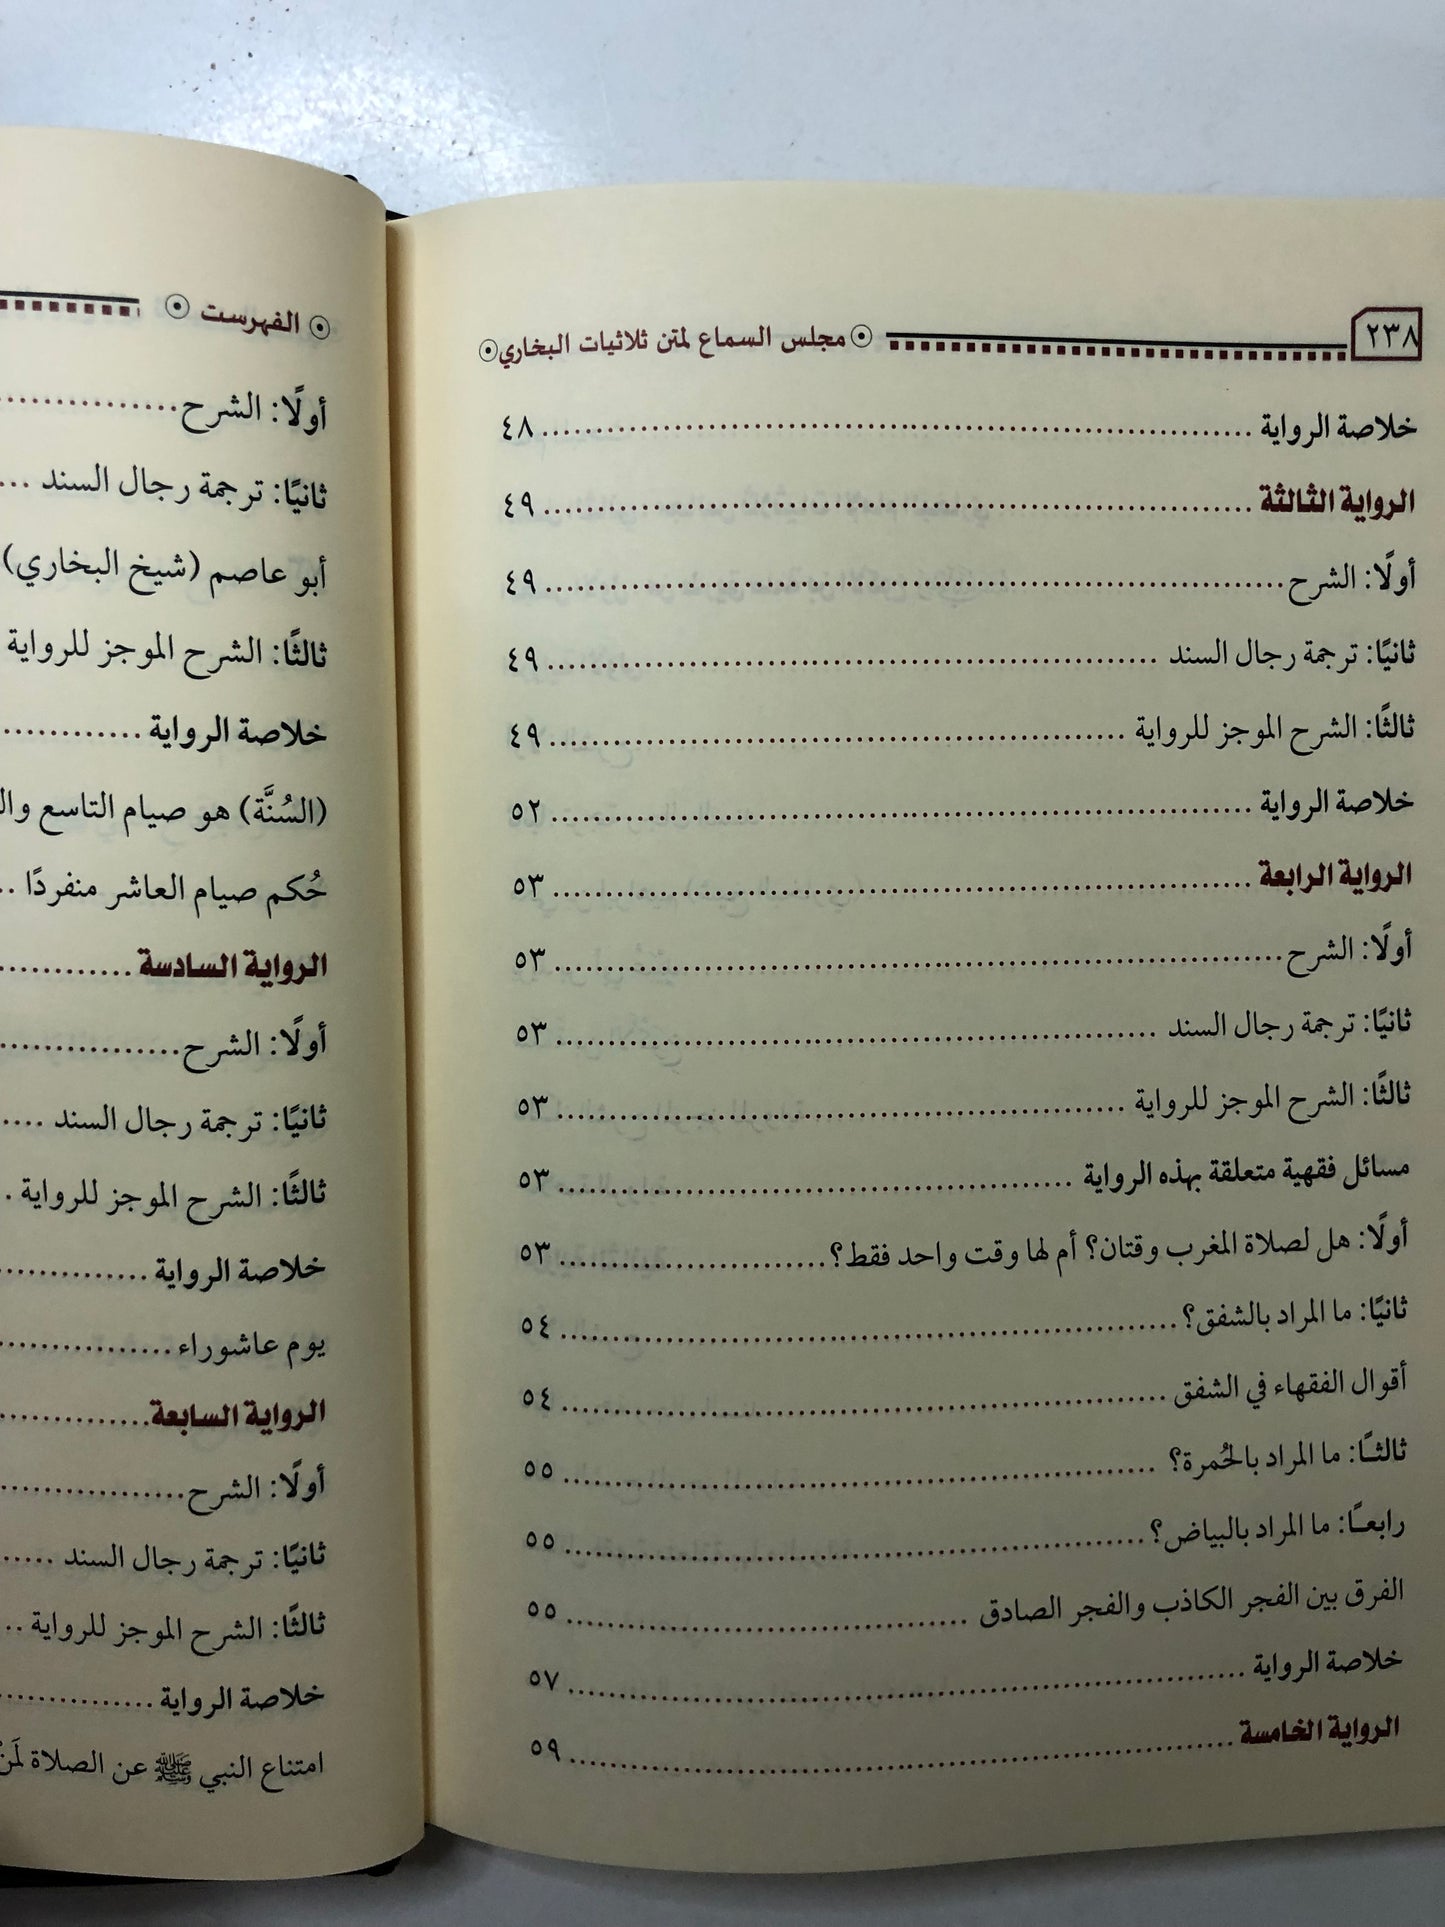 ٢٣٨ مجلس السماع لمتن ثلاثيات البخاري
خلاصة الرواية ٤٨
الرواية الثالثة ٤٩
أولًا: الشرح ٤٩
ثانيًا: ترجمة رجال السند ٤٩
ثالثًا: الشرح الموجز للرواية ٤٩
خلاصة الرواية ٥٢
الرواية الرابعة ٥٣
أولًا: الشرح ٥٣
ثانيًا: ترجمة رجال السند ٥٣
ثالثًا: الشرح الموجز للرواية ٥٣
مسائل فقهية متعلقة بهذه الرواية ٥٣
أولًا: هل لصلاة المغرب وقتان؟ أم لها وقت واحد فقط؟ ٥٣
ثانيًا: ما المراد بالشفق؟ ٥٤
أقوال الفقهاء في الشفق ٥٤
ثالثـًا: ما المراد بالحُمرة؟ ٥٥
رابعـًا: ما المراد بالبياض؟ ٥٥
الفرق بين الفجر الكاذب والفجر الصادق ٥٥
خلاصة الرواية ٥٧
الرواية الخامسة ٥٩
الفهرست
أولًا: الشرح
ثانيًا: ترجمة رجال السند
أبو عاصم (شيخ البخاري)
ثالثًا: الشرح الموجز للرواية
خلاصة الرواية
(السُنَّة) هو صيام التاسع
حُكم صيام العاشر منفردًا
الرواية السادسة
أولًا: الشرح
ثانيًا: ترجمة رجال السند
ثالثًا: الشرح الموجز للرواية
خلاصة الرواية
يوم عاشوراء
الرواية السابعة
أولًا: الشرح
ثانيًا: ترجمة رجال السند
ثالثًا: الشرح الموجز للرواية
خلاصة الرواية
امتناع النبي ﷺ عن الصلاة لَمَن